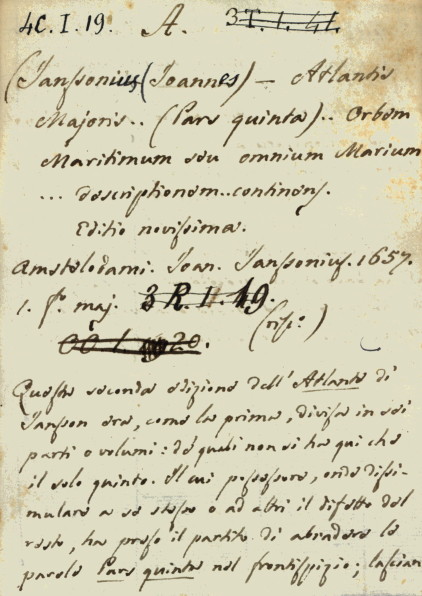 4C. I. 19. A. 3T. I. 41.
(Janssonius (Joannes) — Atlantis
Majoris.. (Pars quinta).. Orbem
Maritimum seu omnium Marium
... descriptionem.. continens.
Editio novissima.
Amstelodami. Joan. Janssonius. 1657.
1. fº. maj. 3 R. II. 49.
OO. I. 20. (ris:º)
Questa seconda edizione dell' Atlante di
Jansson era, come la prima, divisa in sei
parti o volumi: de' quali non si ha qui che
il solo quinto. Il cui possessore, onde dissi-
mulare a se stesso o ad altri il difetto del
resto, ha preso il partito di abradere le
parole Pars quinta nel frontispizio; lascian